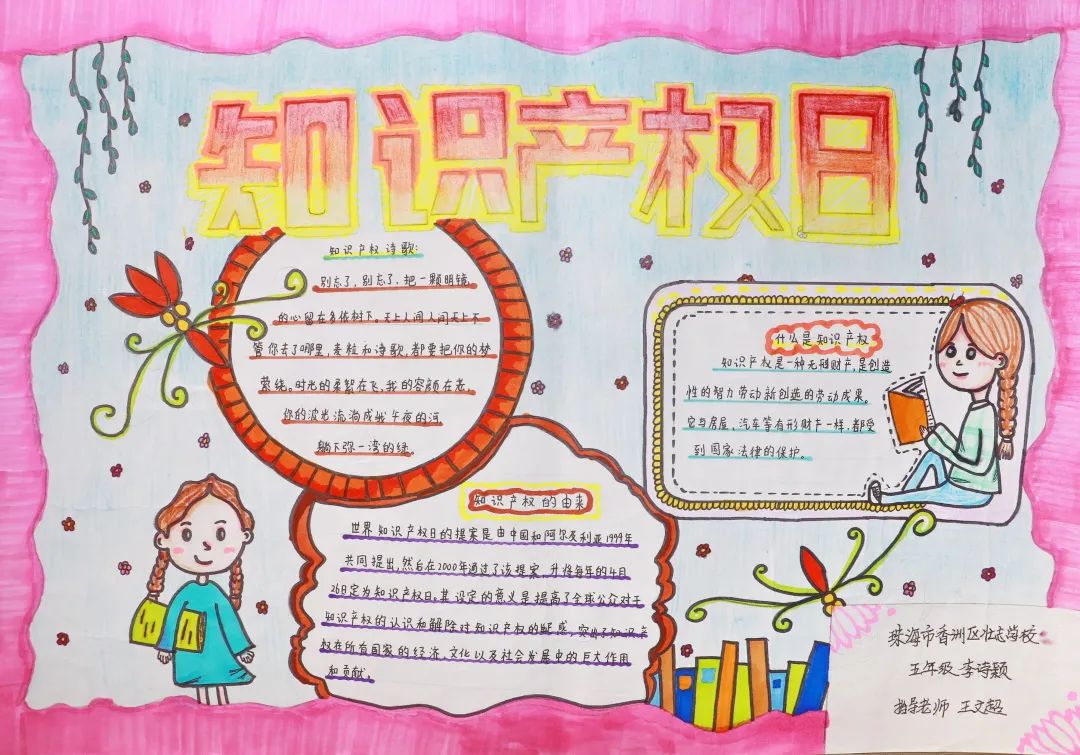 知识产权日
知识产权诗歌:
别忘了,别忘了,把一颗明镜
的心留在乡依树下。天上人间人间天上不
管你去了哪里,麦粒和诗歌,都要把你的梦
萦绕。时光的柔絮在飞,我的容颜在老,
你的波光流淌成我午夜的河
躺下弥一湾的绿。
什么是知识产权
知识产权是一种无形财产,是创造
性的智力劳动新创造的劳动成果。
它与房屋、汽车等有形财产一样,都受
到国家法律的保护。
知识产权的由来
世界知识产权日的提案是由中国和阿尔及利亚1999年
共同提出,然后在2000年通过了该提案,并将每年的4月
26日定为知识产权日。其设定的意义是提高了全球公众对于
知识产权的认识和解除对知识产权的疑惑,突出了知识产
权在所有国家的经济,文化以及社会发展中的巨大作用
和贡献。
珠海市香洲区壮志学校
五年级 李诗颖
指导老师 王文超